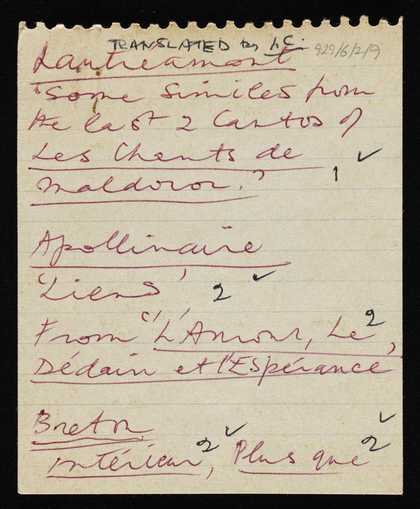 TRANSLATED by I.C. 929/6/2/9
Lautréamont
"Some Similes from
the last 2 Cantos of
Les Chants de
Maldoror." 1 ✓
Apollinaire
'Liens' 2 ✓
From "L'Amour, Le 2
Dédain et l'Espérance
Breton
intérieur 2 ✓, Plus que 2 ✓